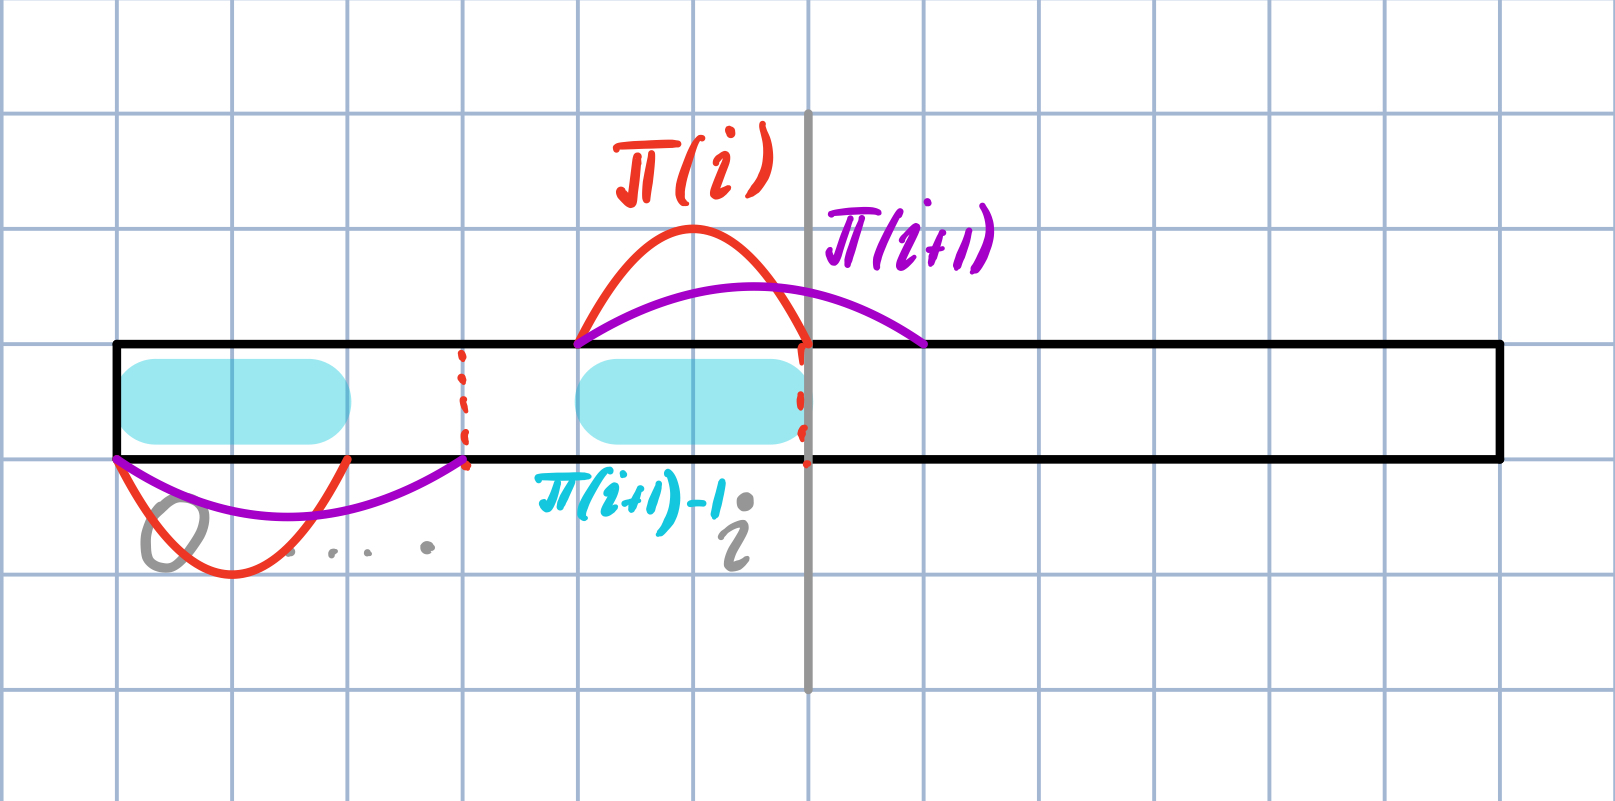 π(i)
π(i+1)
π(i+1)-1
0 .... i